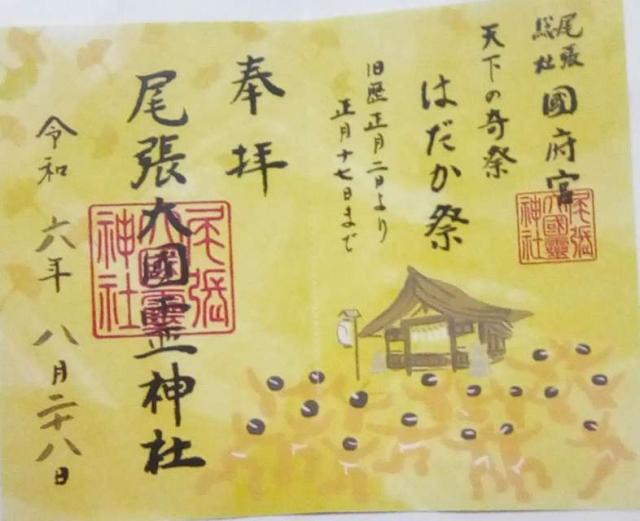 尾張
総社
國府宮
天下の奇祭
はだか祭
旧歴正月二日より
正月十七日まで
奉拝
尾張大國霊神社
令和六年八月二十八日
尾張
大國霊
神社
尾張
大國靈
神社